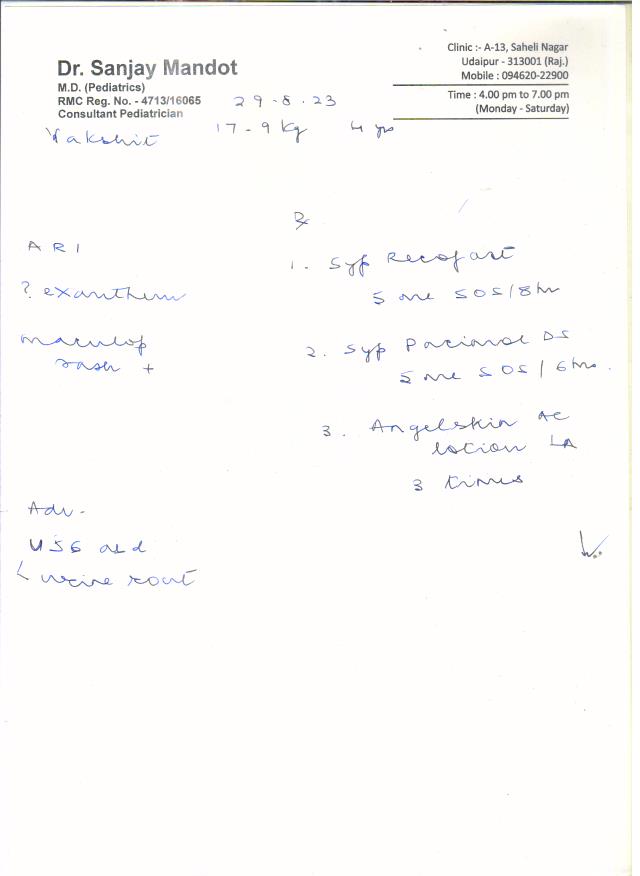 Dr. Sanjay Mandot
M.D. (Pediatrics)
RMC Reg. No. - 4713/16065
Consultant Pediatrician
Clinic :- A-13, Saheli Nagar
Udaipur - 313001 (Raj.)
Mobile : 094620-22900
Time : 4.00 pm to 7.00 pm
(Monday - Saturday)
29-8-23
17-9 kg 4 yrs
ARI
? exanthem
maculop
rash +
Adv -
USG
urine rout
Rx
1. Syp Recofast
5 ml SOS/8hr
2. Syp DS
5 ml SOS/6hrs.
3. Angelskin AC
lotion LA
3 times